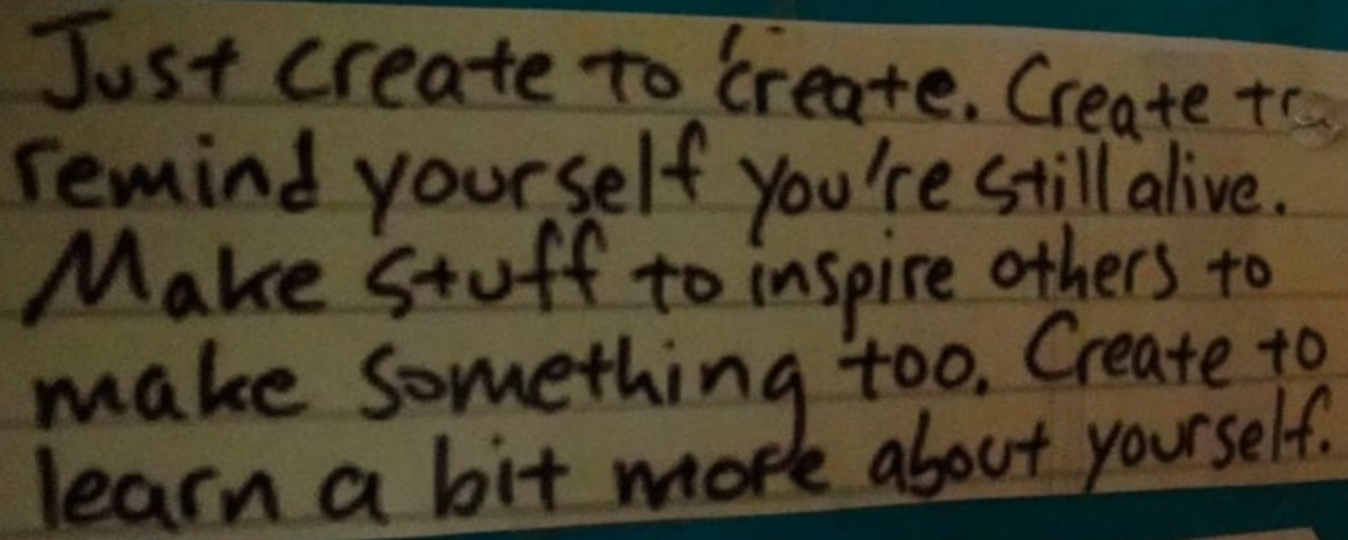 Just create to create. Create to
remind yourself you're still alive.
Make stuff to inspire others to
make something too. Create to
learn a bit more about yourself.